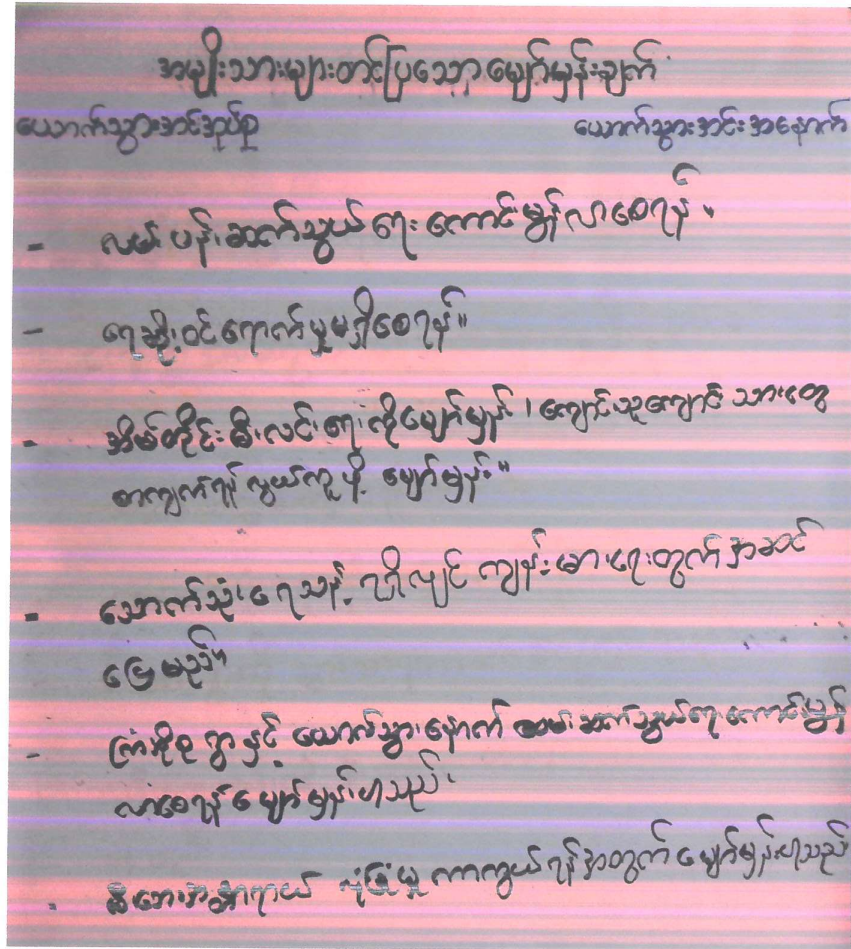 အမျိုးသားများတင်ပြသော မျှော်မှန်းချက်
ယောက်သွားအင်အုပ်စု ယောက်သွားအင်းအနောက်
- လမ်းပန်းဆက်သွယ်ရေး ကောင်းမွန်လာစေရန်။
- ရေဆိုးဝင်ရောက်မှုမရှိစေရန်။
- အိမ်တိုင်းမီးလင်းရေးကိုမျှော်မှန်း၊ ကျောင်းသူကျောင်းသားတွေ
စာကျက်ရန်လွယ်ကူဖို့ မျှော်မှန်း။
- သောက်သုံးရေသန့်ရရှိလျှင် ကျန်းမာရေးတွက်အဆင်
ပြေမည်။
- ကြံအိုစုရွာနှင့် ယောက်သွားနောက် လမ်းဆက်သွယ်ရေးကောင်းမွန်
လာစေရန် မျှော်မှန်းပါသည်၊
- မီးဘေးအန္တရာယ် လုံခြုံမှု ကာကွယ်ရန်အတွက် မျှော်မှန်းပါသည်